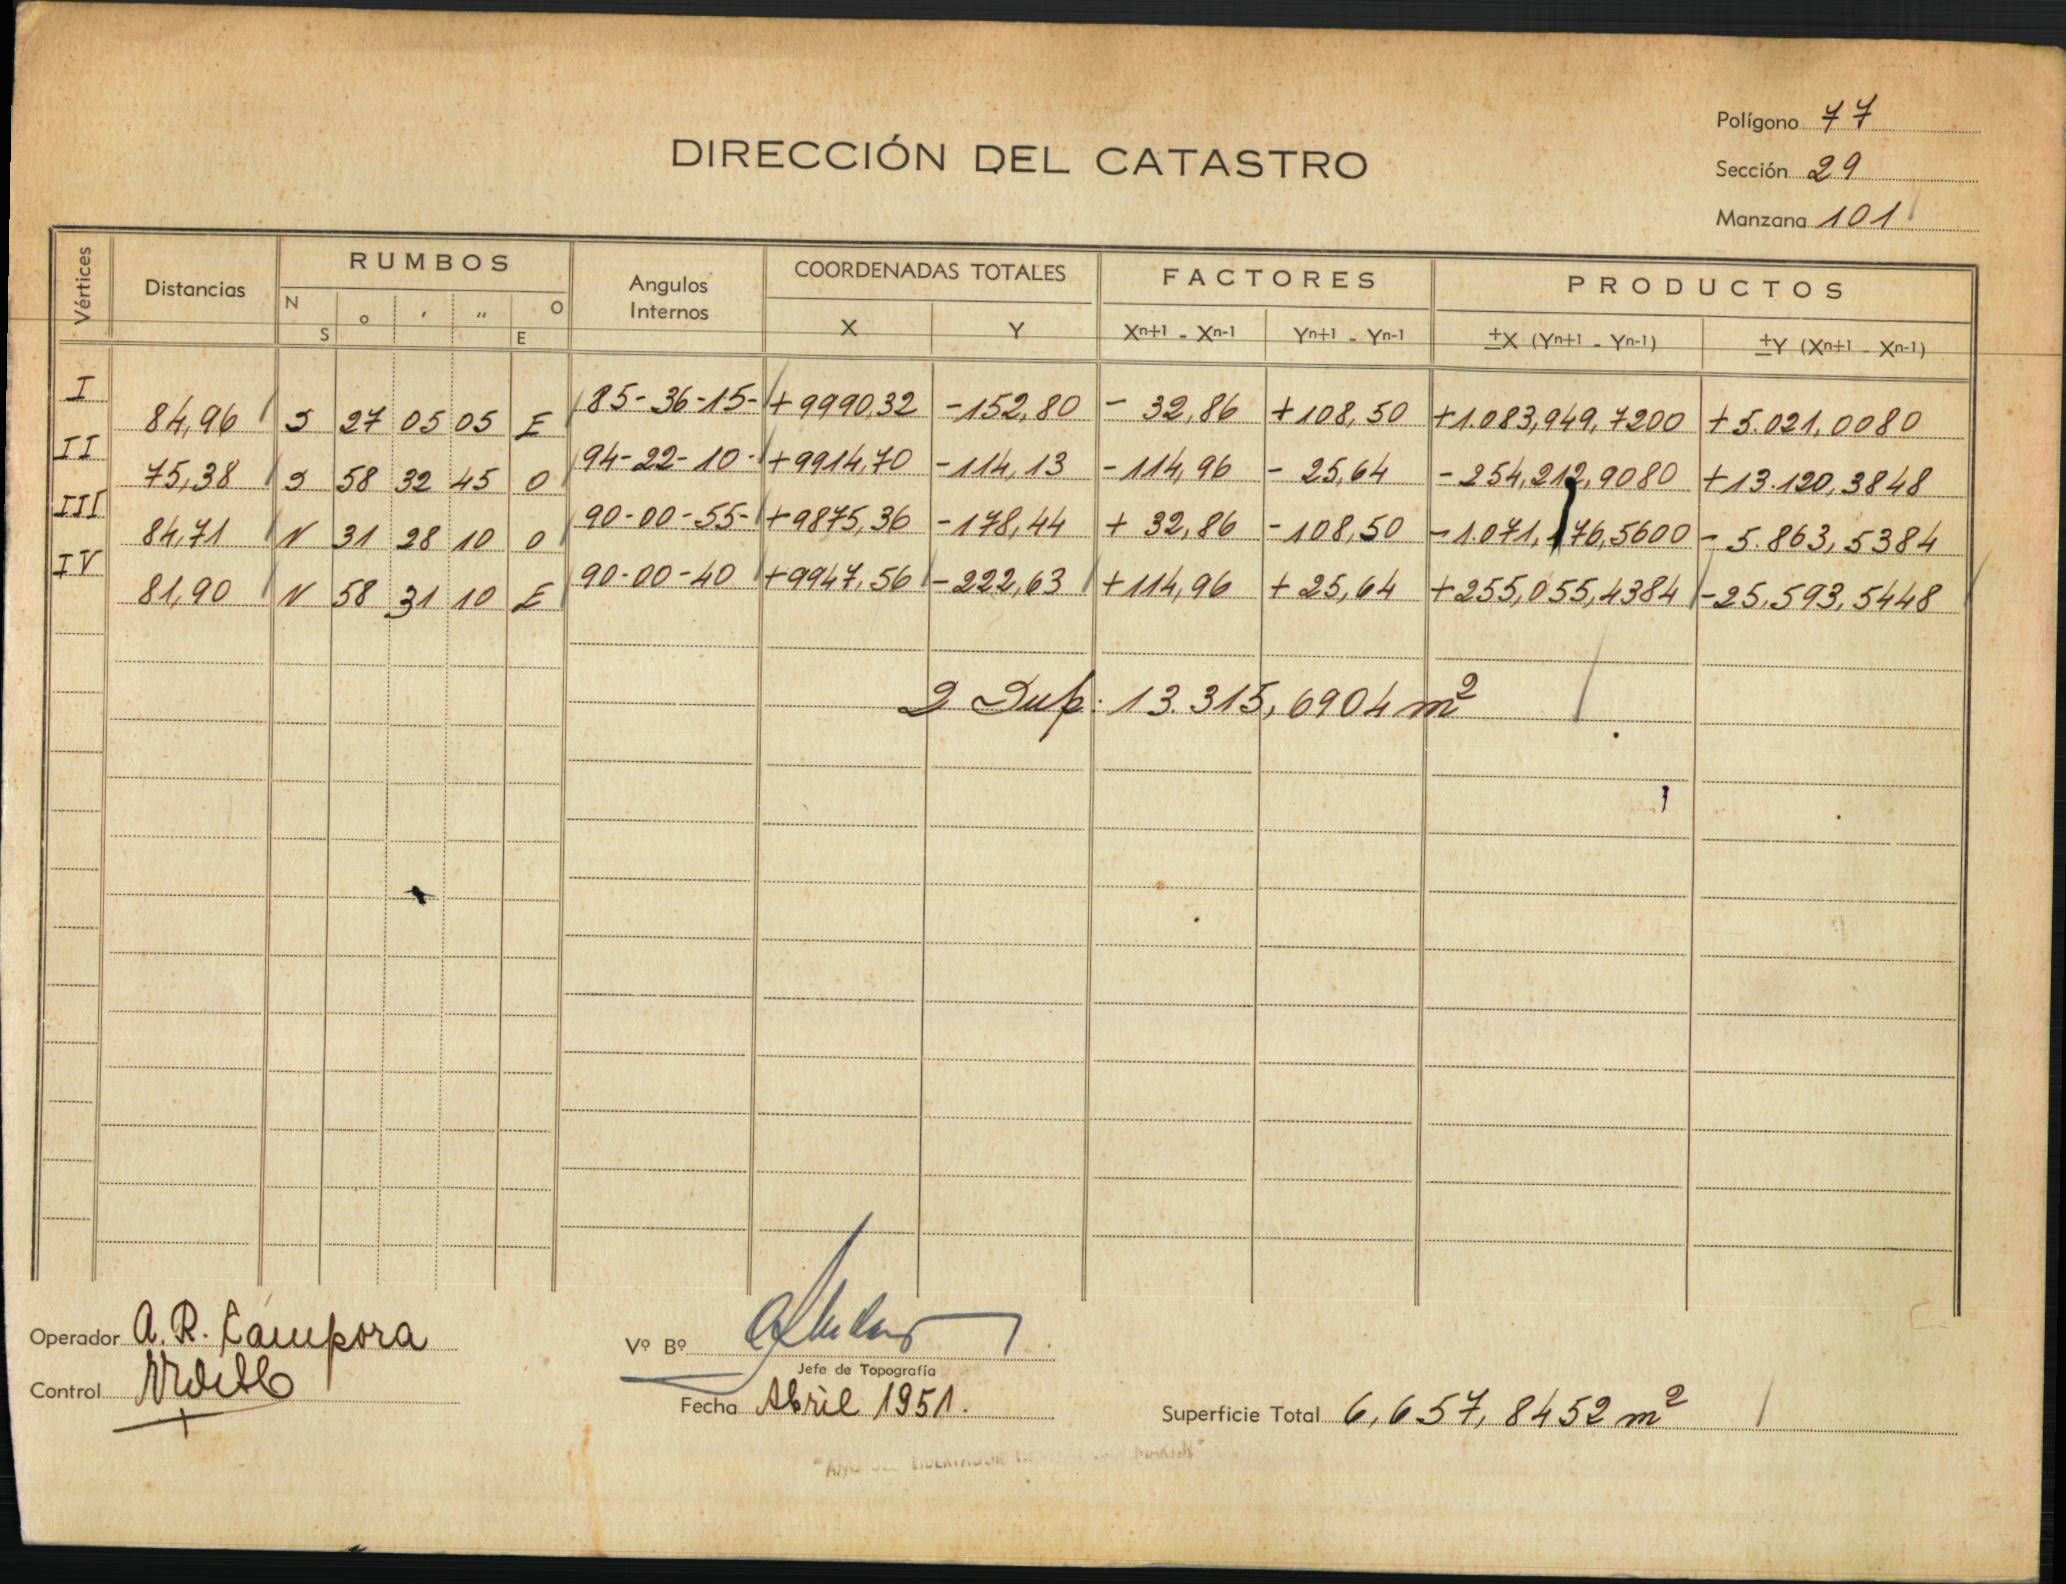 Polígono 77
DIRECCIÓN DEL CATASTRO
Sección 29
Manzana 101
Vértices Distancias RUMBOS Angulos Internos COORDENADAS TOTALES FACTORES PRODUCTOS
N S ° ' " O E X Y Xn+1 - Xn-1 Yn+1 - Yn-1 ±X (Yn+1 - Yn-1) ±Y (Xn+1 - Xn-1)
I 84,96 S 27 05 05 E 85-36-15- +9990,32 -152,80 - 32,86 +108,50 +1.083,949,7200 +5.021,0080
II 75,38 S 58 32 45 O 94-22-10- +9914,70 -114,13 -114,96 - 25,64 -254,212,9080 +13.120,3848
III 84,71 N 31 28 10 O 90-00-55- +9875,36 -178,44 + 32,86 -108,50 -1.071,476,5600 - 5.863,5384
IV 81,90 N 58 31 10 E 90-00-40 +9947,56 -222,63 +114,96 + 25,64 +255,055,4384 -25.593,5448
2 Sup: 13.315,6904 m²
Operador A. R. Cámpora
Vº Bº
Jefe de Topografía
Control
Fecha Abril 1951.
Superficie Total 6,657,8452 m²